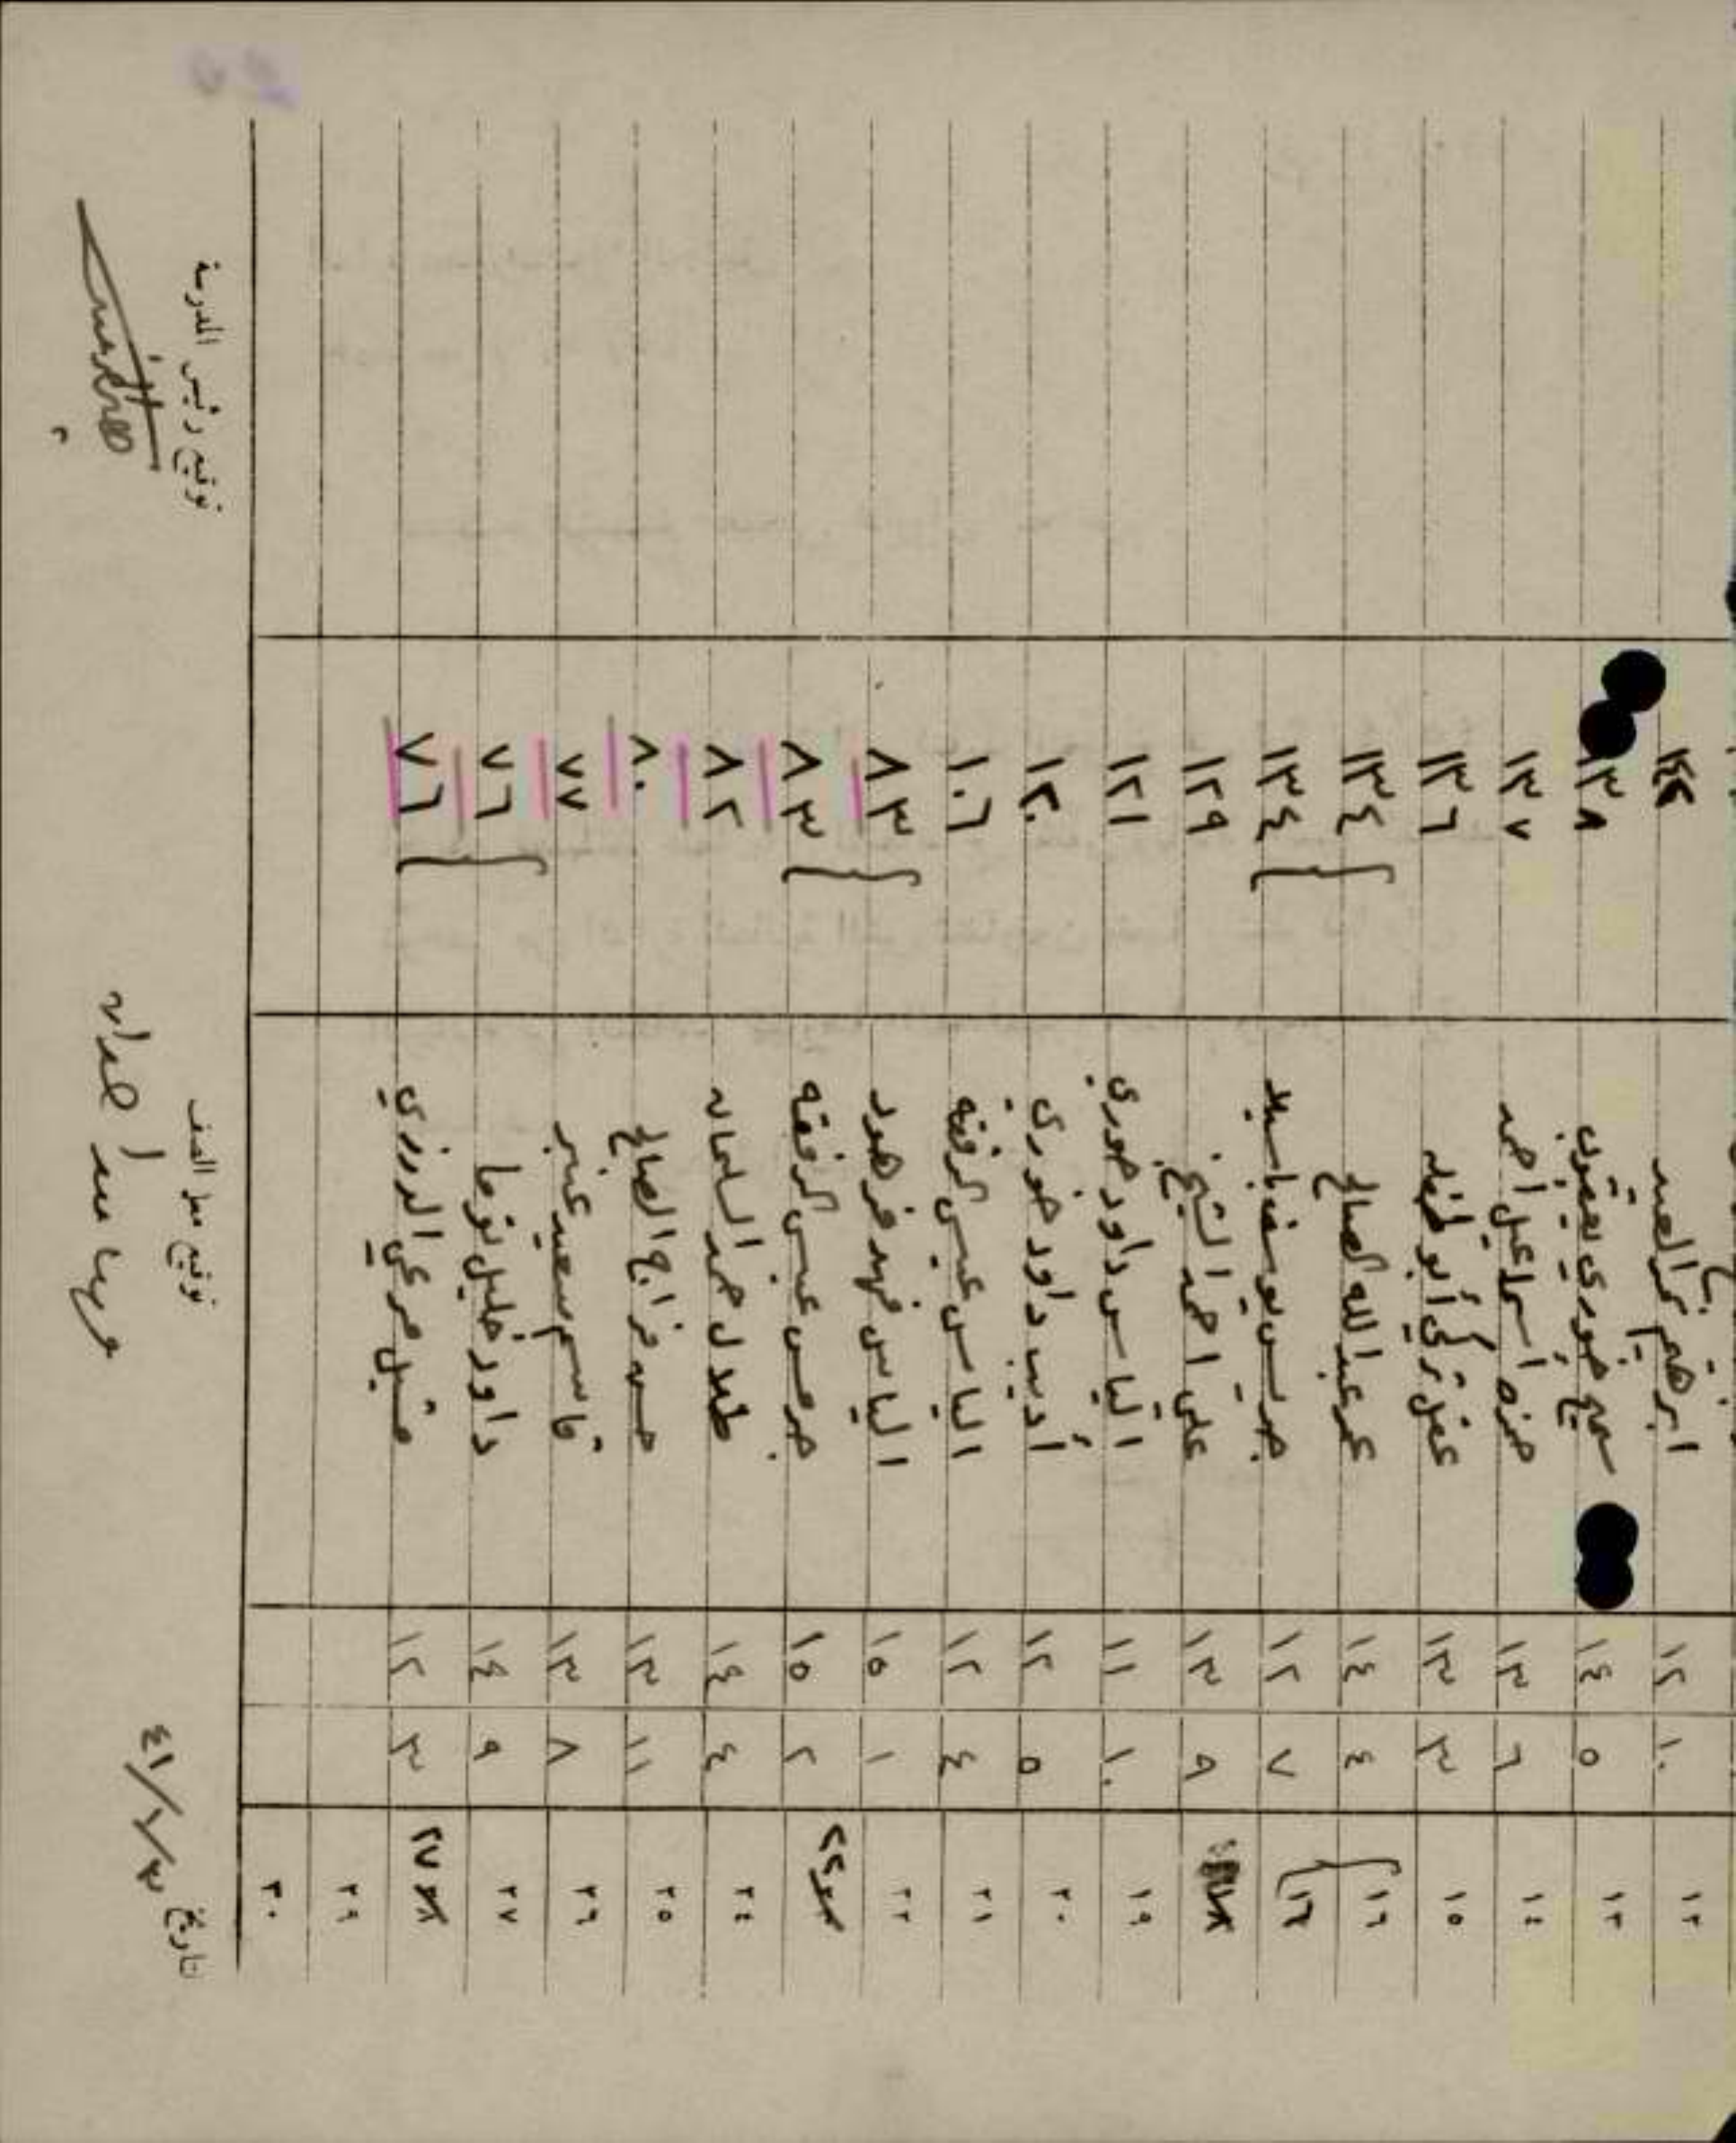 ١٢ ١٠ ١٢ ابرهيم نمر العبد ١٤٢
١٣ ٥ ١٤ سميح خوري يعقوب ١٣٨
١٤ ٦ ١٣ حمزه اسماعيل احمد ١٣٧
١٥ ٣ ١٣ عقل تركي أبو طفله ١٣٦
١٦ ٤ ١٤ عمر عبد الله الصالح ١٣٤
١٦ ٧ ١٢ جريس يوسف باسيلا ١٣٤
٩ ١٣ علي احمد الشيخ ١٢٩
١٩ ١٠ ١١ الياس داود خوري ١٢١
٢٠ ٥ ١٢ أديب داود خوري ١٢٠
٢١ ٤ ١٢ الياس عيسى ١٠٦
٢٢ ١ ١٥ الياس فهد فرهود ٨٣
٢ ١٥ جرجس عيسى ٨٣
٢٤ ٤ ١٤ طلال حمد السلمان ٨٢
٢٥ ١١ ١٣ حسن فراج الصالح ٨٠
٢٦ ٨ ١٣ قاسم سعيد عنبر ٧٧
٢٧ ٩ ١٤ داود خليل توما ٧٦
٢٧ ٣ ١٢ مقبل مرعي الدرزي ٧٦
٢٩
٣٠
تاريخ ٤١/٧/٣ توقيع معلم الصف توقيع رئيس المدرسة